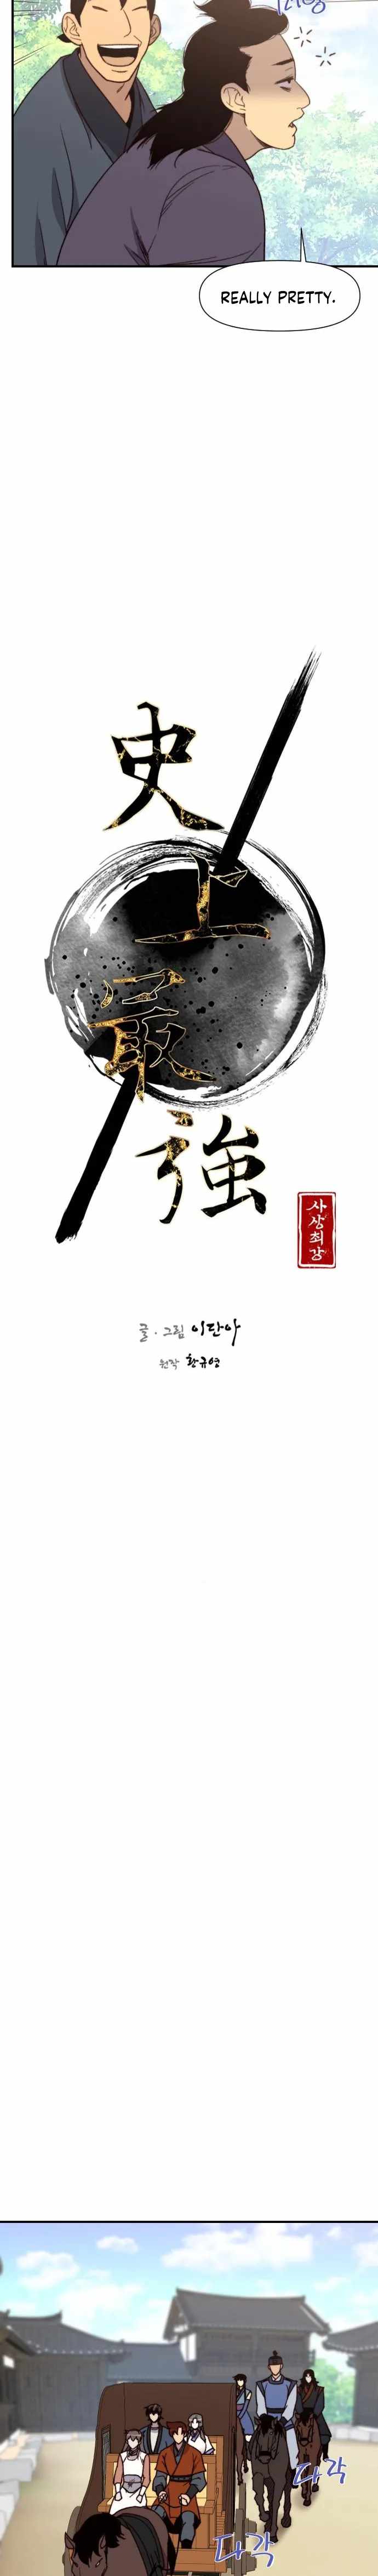 REALLY PRETTY.
史
上
最
強
사
상
최
강
글·그림 이단아
원작 황규영
다각
다각